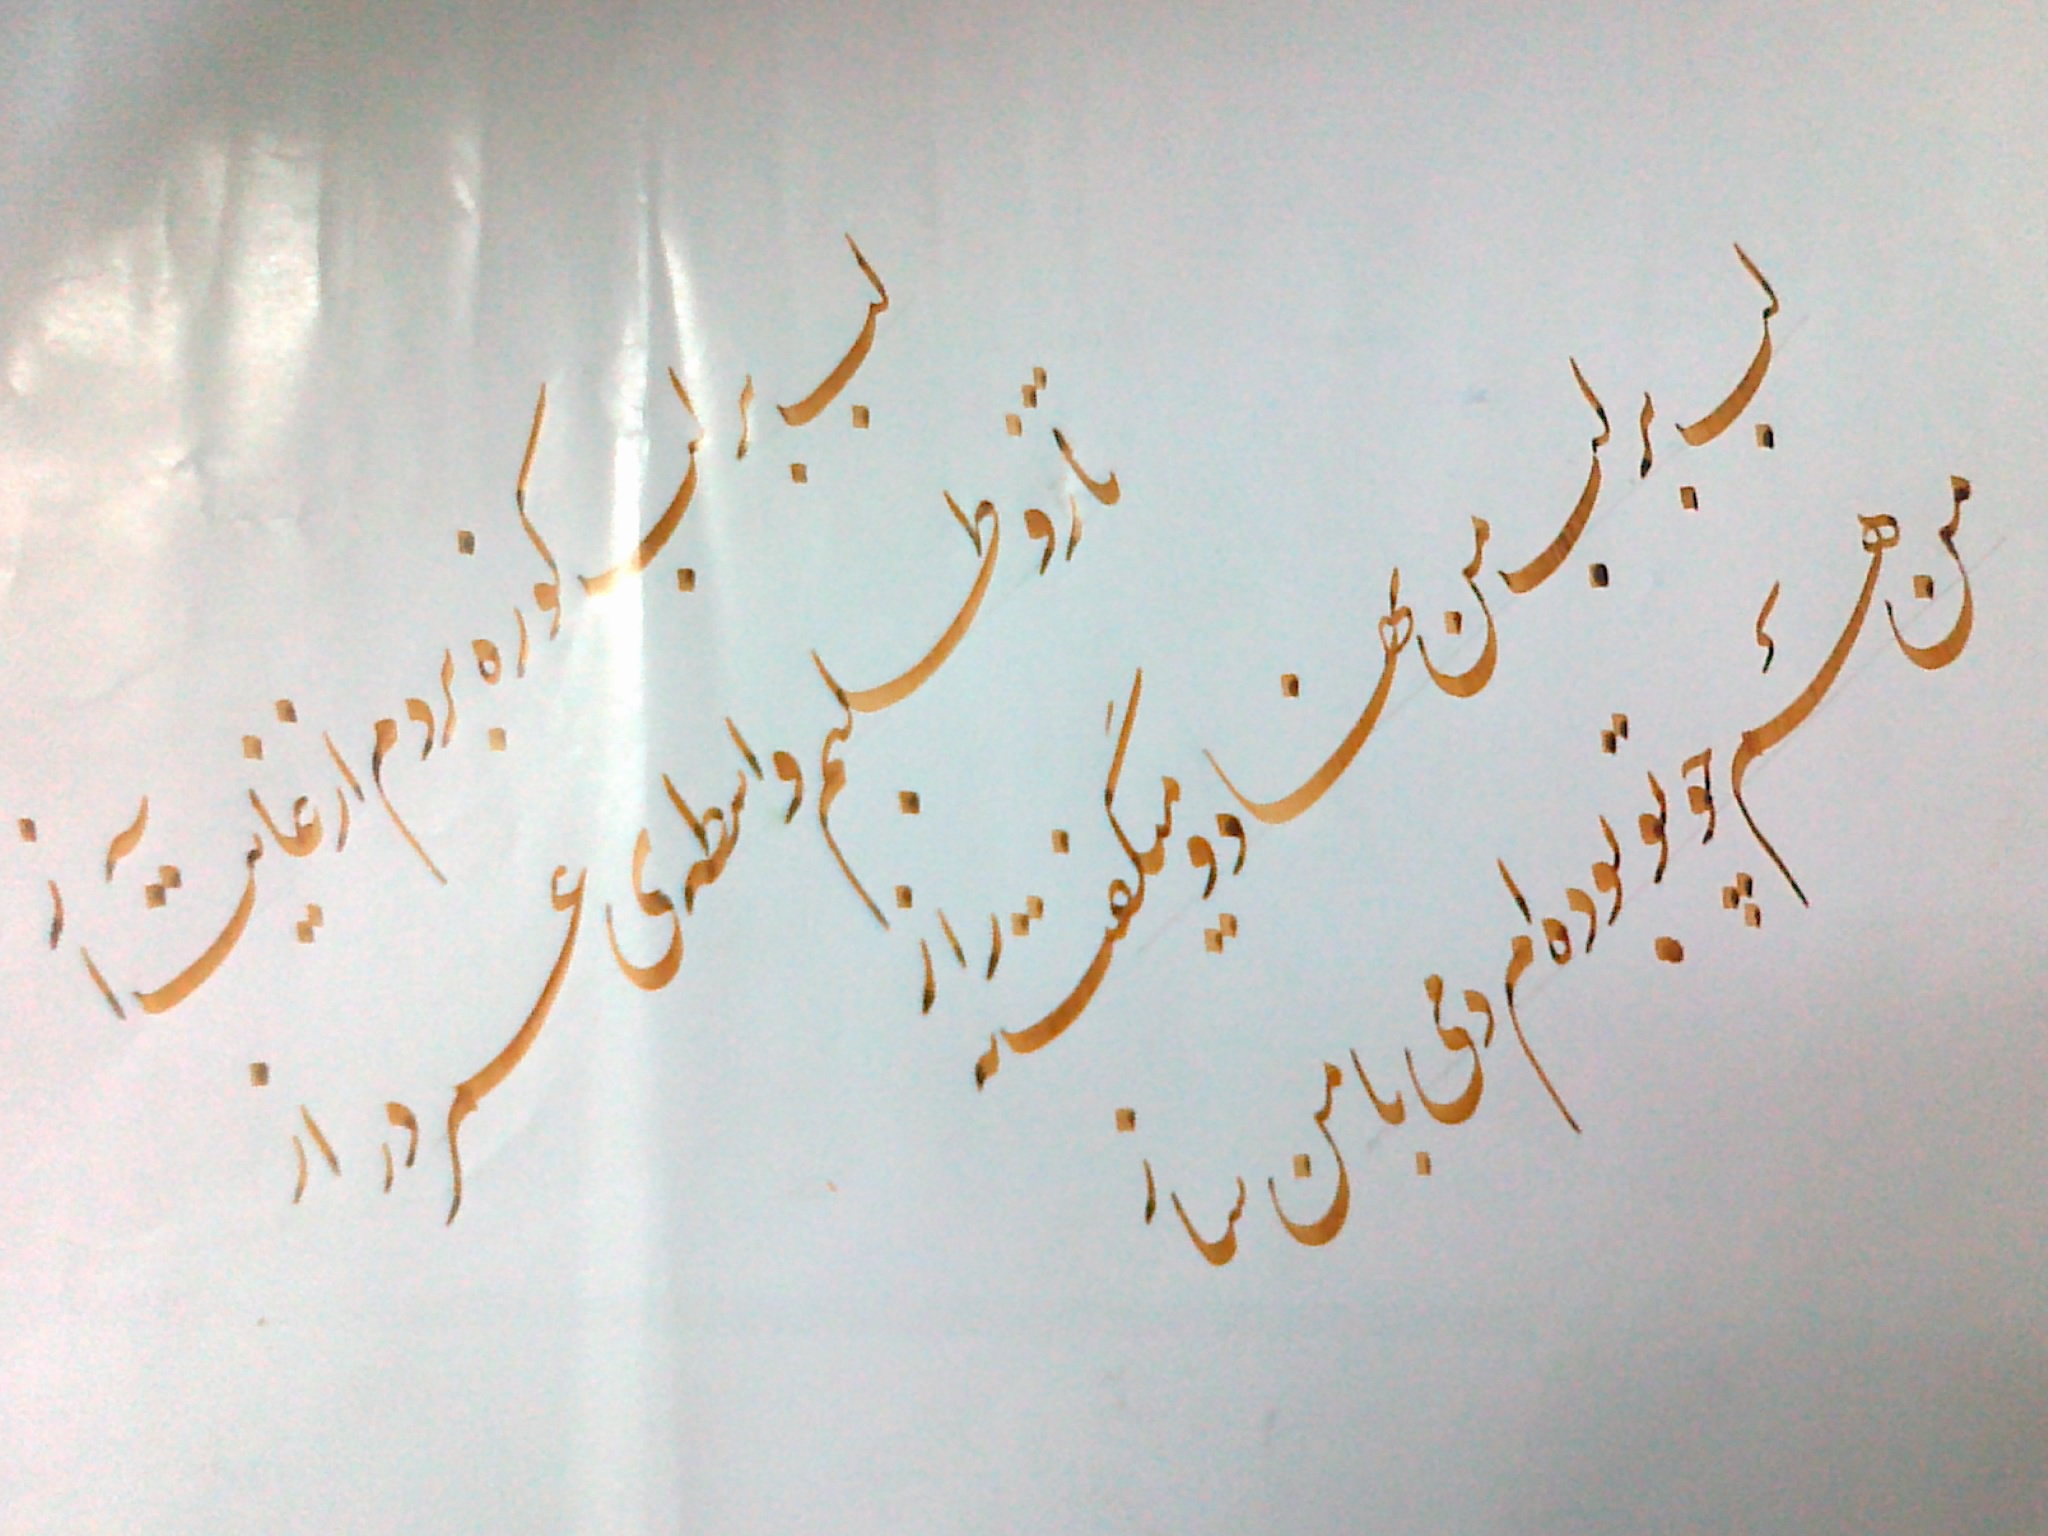 لب بر لب کوزه بردم از غایت آز
تا زو طلبم واسطه ی عمر دراز
لب بر لب من نهاد و میگفت به راز
من هم چو تو بوده ام دمی با من ساز